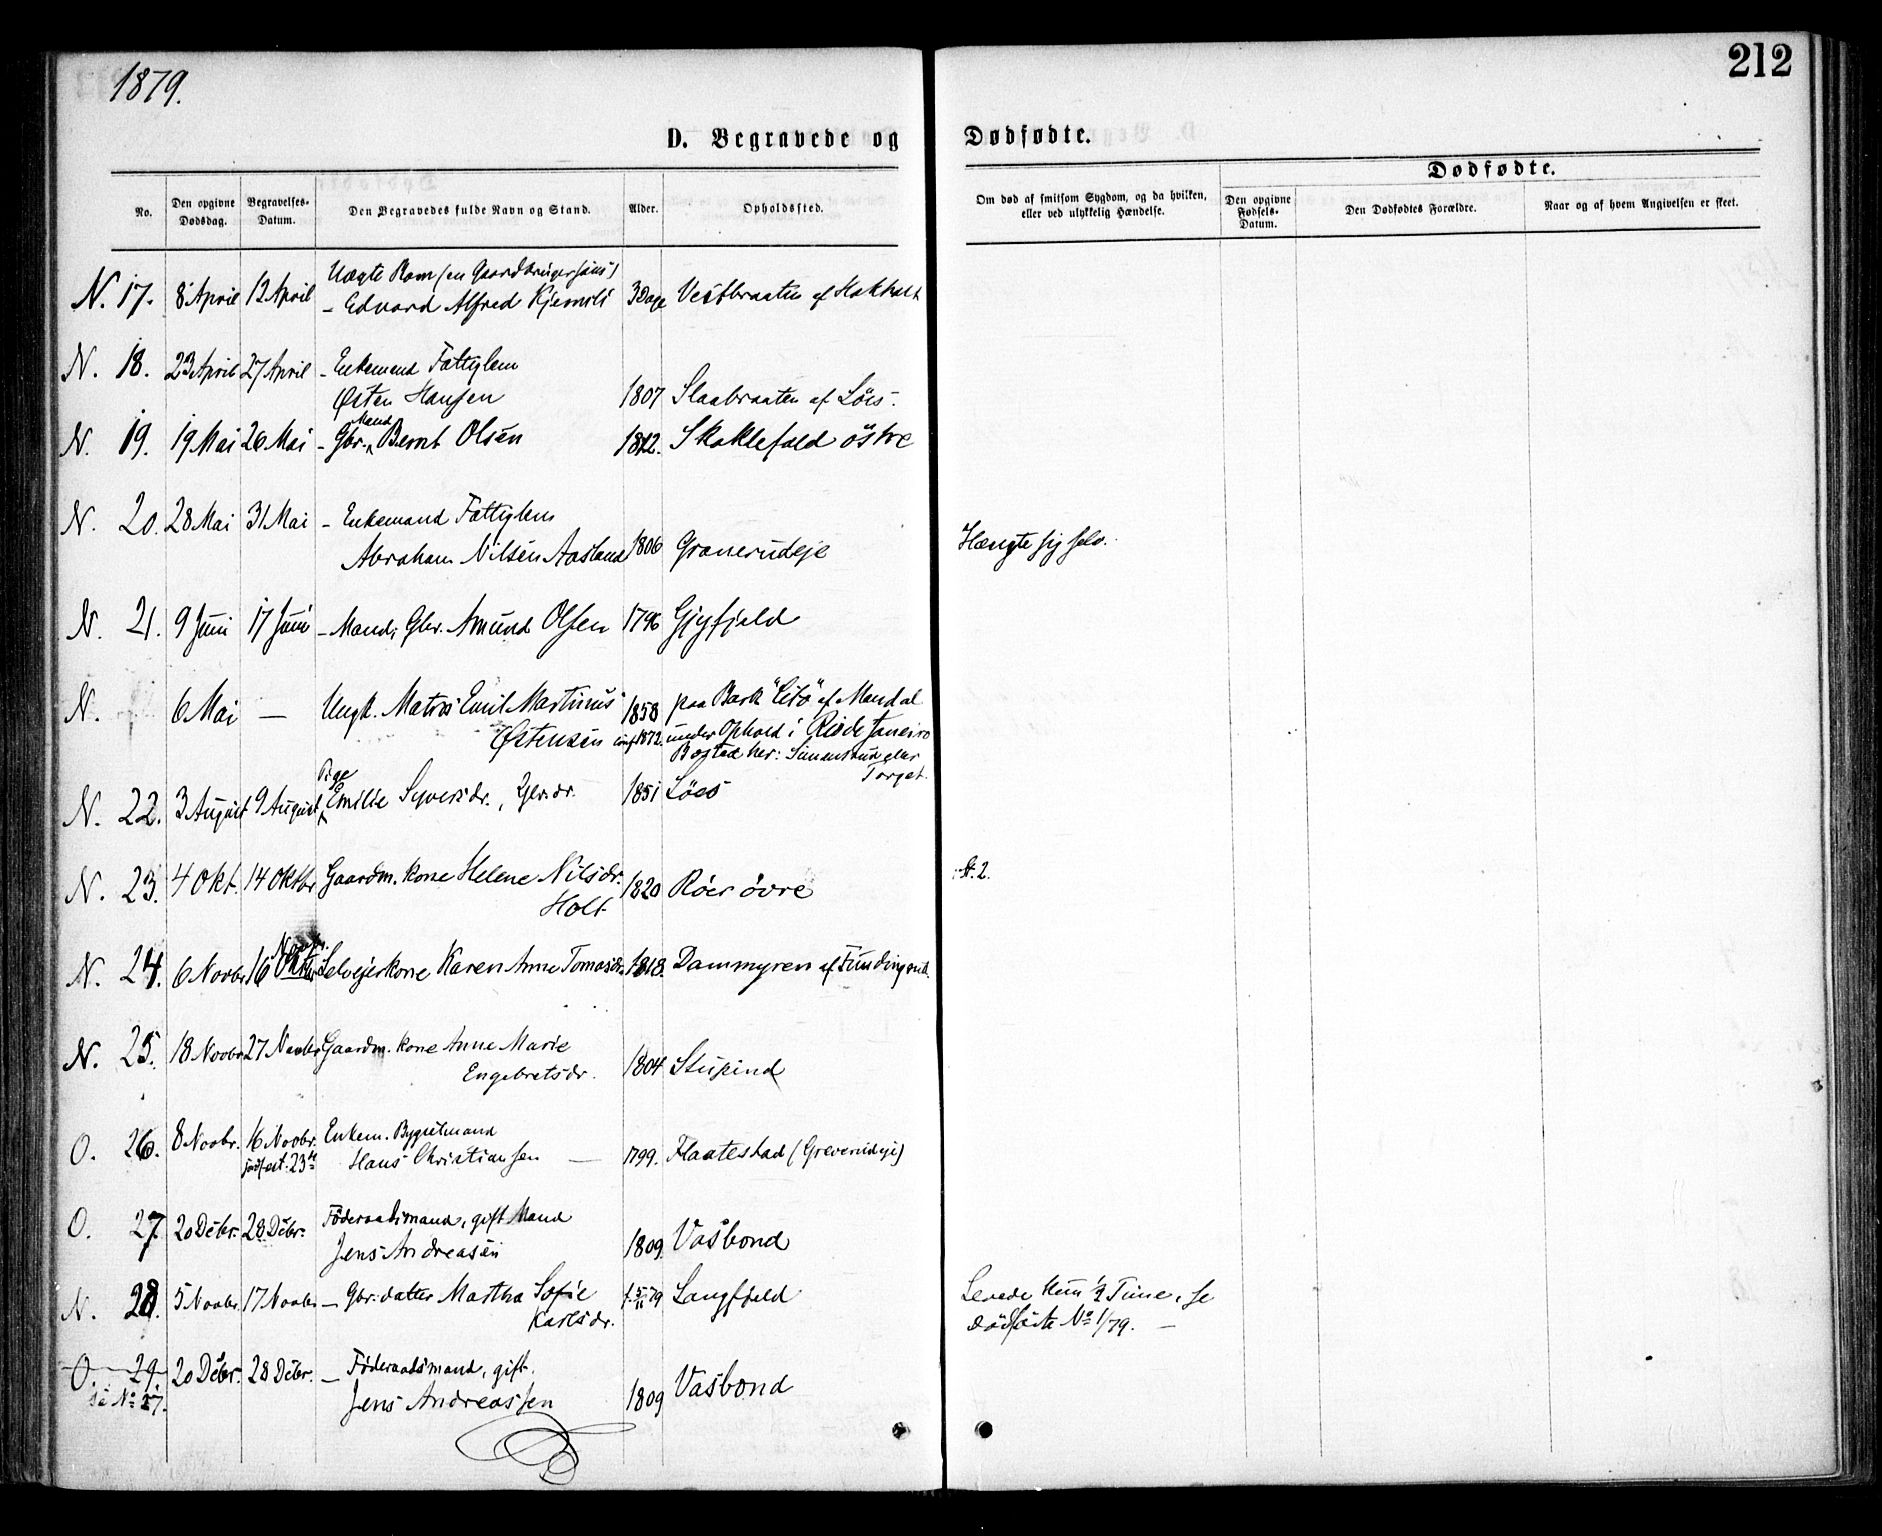 1879.
212
D. Begravede og Dødfødte.
Dødfødte.
No.
Den opgivne Dødsdag.
Begravelses-Datum.
Den Begravedes fulde Navn og Stand.
Alder.
Opholdssted.
Om død af smitsom Sygdom, og da hvilken, eller ved ulykkelig Hændelse.
Den opgivne Fødsels-Datum.
Den Dødfødtes Forældre.
Naar og af hvem Angivelsen er skeet.
Uægte Barn (en Gaardbrugersøns)
N. 17. 8 April 12 April - Edvard Alfred Kjemsli 3 Dage Vestbraaten af Hakholt
N. 18. 23 April 27 April - Enkemand Fattiglem
Østen Hansen 1807 Slaabraaten af Löes.
Mand
N. 19. 19 Mai 26 Mai - Gbr. Bernt Olsen 1812. Skoklefald östre
N. 20. 28 Mai 31 Mai - Enkemand Fattiglem
Abraham Nilsen Aasland 1806 Granerudeje Hængte sig selv.
N. 21. 9 Juni 17 Juni - Mand, Gbr. Amund Olsen 1796 Gjøfjeld
N. 6 Mai — Ungk. Matros Emil Martinus 1858 paa Bark "Lito" af Mandal
Østensen conf. 1872. under Ophold i Rio de Janeiro
Bosted her: Simenstrud eller
Torget.
Pige
N. 22. 3 August 9 August Emilie Syversdr., Gbr.dr. 1851 Löes
N. 23. 4 Okt. 14 Oktbr Gaardm. kone Helene Nilsdr. 1820 Röer övre
Holt
Novbr.
N. 24. 6 Novbr 16 Oktbr Selveierkone Karen Anne Tomasdr. 1818. Dammyren af Fundingrud.
N. 25. 18 Novbr 27 Novbr Gaardm. kone Anne Marie
Engebretsdr. 1804 Stupind
O. 26. 8 Novbr. 16 Novbr. Enkem. Bygselmand
jordfæst. 23de Hans Christiansen — 1799. Flaatestad (Greverudeje)
O. 27. 20 Debr. 28 Debr. Föderaadsmand, gift Mand
Jens Andreasen 1809. Vasbond
N. 28. 5 Novbr. 17 Novbr. - Gbr. datter Martha Sofie f. 5/11 79 Langfjeld Levede kun 1/2 Time, se
Karlsdr. dödfödte No 1/79. —
O. 29. 20 Debr. 28 Debr. - Föderaadsmand, gift.
se No 27. Jens Andreassen 1809 Vasbond